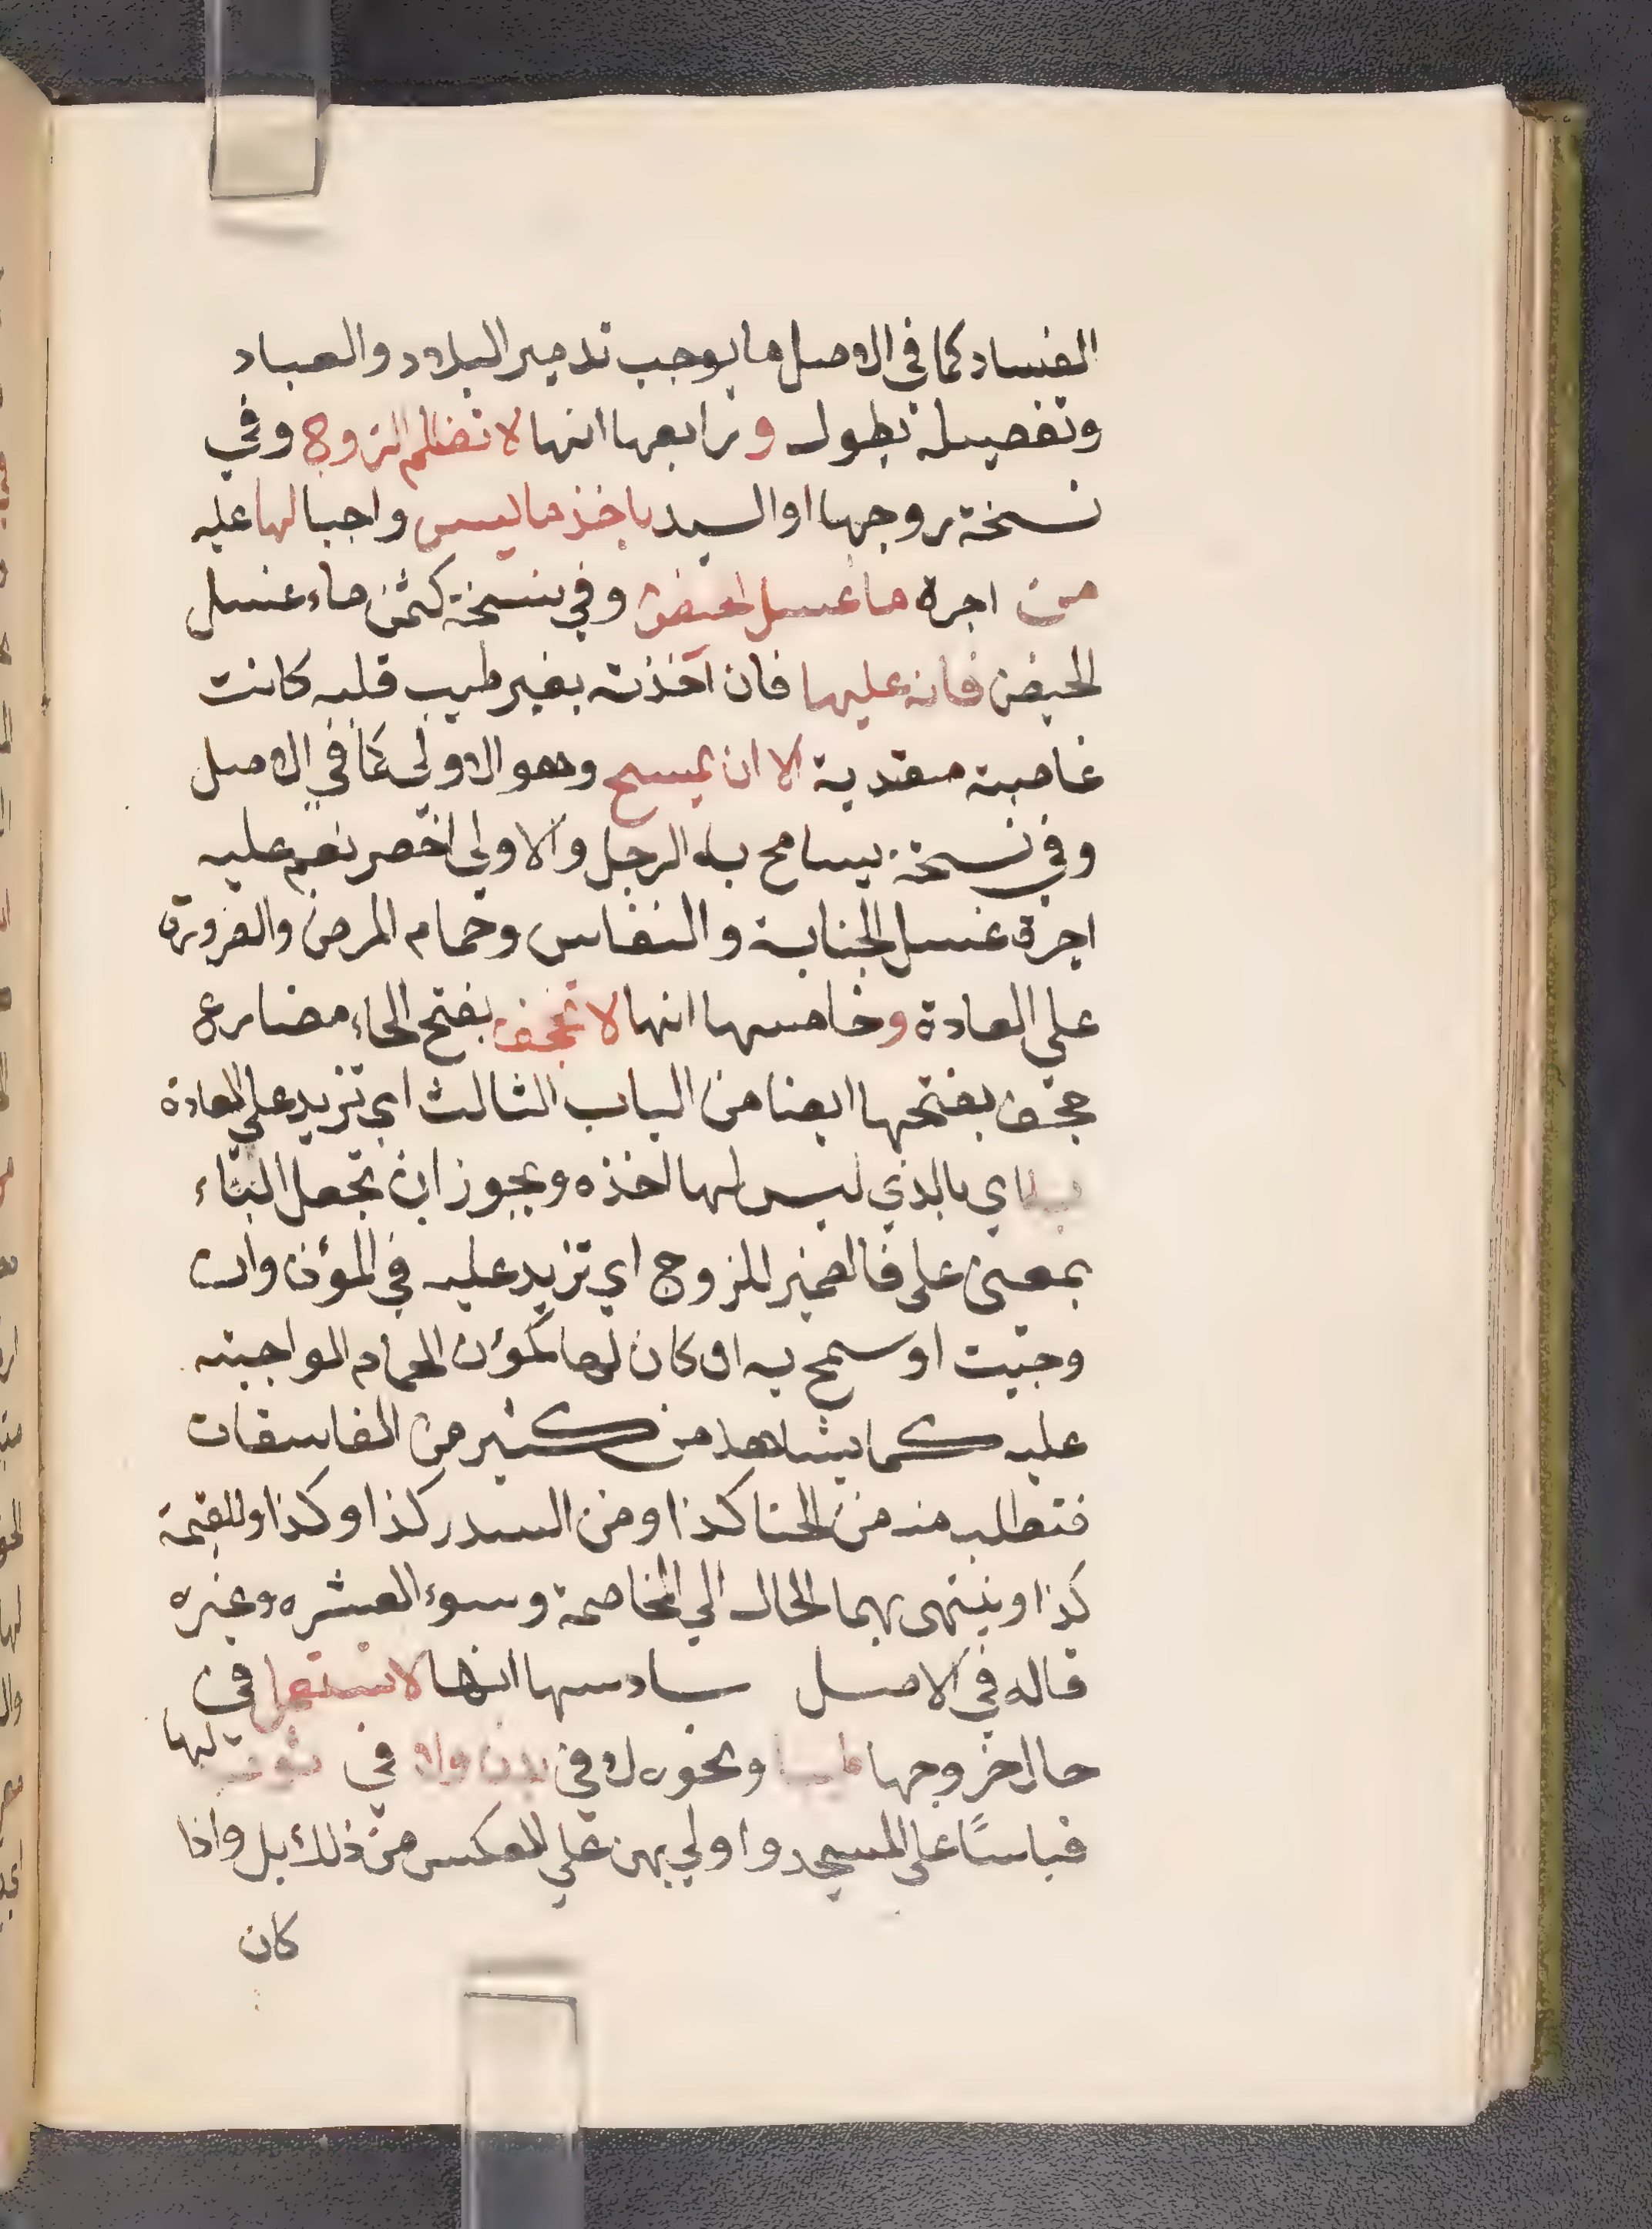 الفساد كما في الاصل ما يوجب تدمير البلاد والعباد
وتفصيله يطول ورابعها انها لا تظلم الزوج وفي
نسخة زوجها او السيد باخذ ما ليس واجبا لها عليه
من اجرة ما غسل الحيض وفي نسخة كثمن ماء غسل
الحيض فانه عليها فان اخذته بغير طيب قلبه كانت
غاصبة متعدية الا ان يسمح وهو الاولى كما في الاصل
وفي نسخة يسامح به الرجل والاولى اخصر نعم عليه
اجرة غسل الجنابة والنفاس وحمام المرض والضرورة
على العادة وخامسها انها لا تجحف بفتح الحاء مضارع
جحف بفتحها ايضا من الباب الثالث اي تزيد على العادة
اي بالذي ليس لها اخذه ويجوز ان تجعل الباء
بمعنى على فالضمير للزوج اي تزيد عليه في المؤن وان
وجبت او سمح به او كان لها كمؤن الحمام الواجبة
عليه كما يشاهد من كثير من الفاسقات
فتطلب منه من الحنا كذا ومن السدر كذا وكذا وللقيمة
كذا وينتهي بهما الحال الي المخاصمة وسوء العشره وغيره
قاله في الاصل سادسها انها لا تستعمل في
حال خروجها طيبا ونحوه لا في بدن ولا في ثوب لها
قياسًا على المسجد واولي بهن علي العكس من ذلك بل واذا
كان